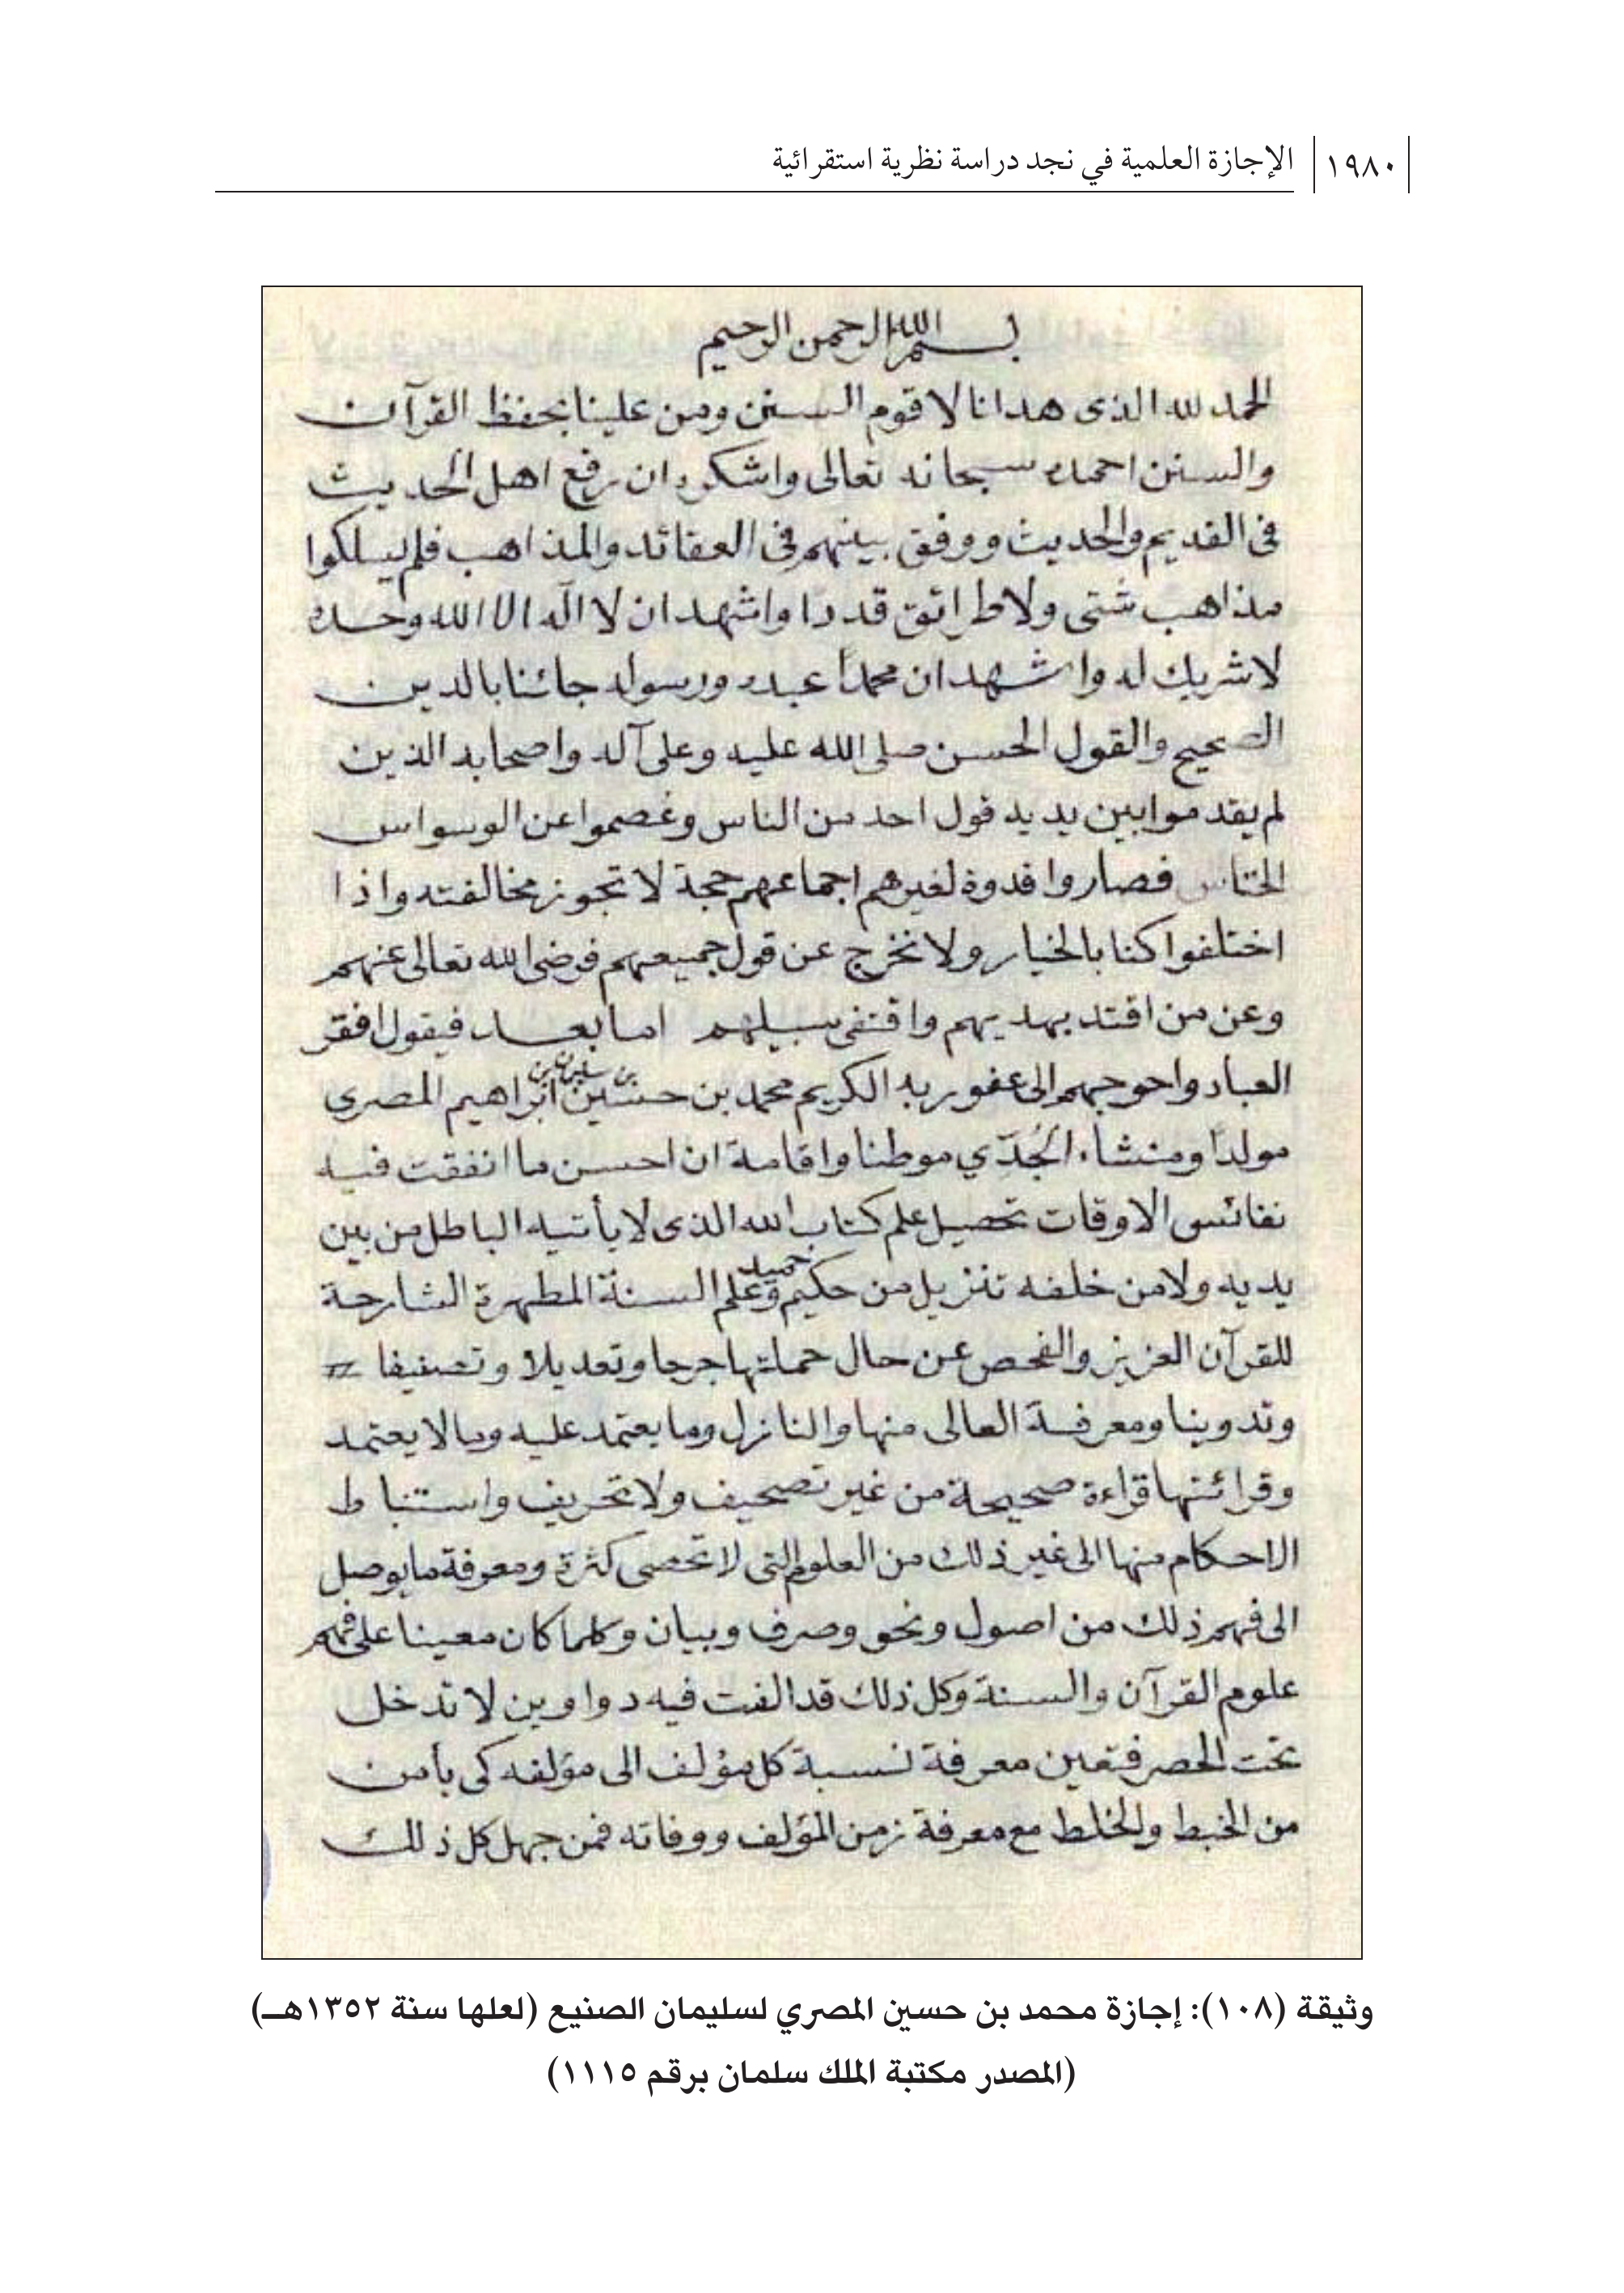 ١٩٨٠ الإجازة العلمية في نجد دراسة نظرية استقرائية
بسم الله الرحمن الرحيم
الحمد لله الذى هدانا لاقوم السنن ومن علينا بحفظ القرآن
والسنن احمده سبحانه تعالى واشكره ان رفع اهل الحديث
فى القديم والحديث ووفق بينهم فى العقائد والمذاهب فلم يسلكوا
مذاهب شتى ولا طرائق قددا واشهد ان لا اله الا الله وحده
لا شريك له واشهد ان محمداً عبده ورسوله جائنا بالدين
الصحيح والقول الحسن صلى الله عليه وعلى آله واصحابه الذين
لم يقدموا بين يديه قول احد من الناس وعصموا عن الوسواس
الخناس فصاروا قدوة لغيرهم اجماعهم حجة لا تجوز مخالفته واذا
اختلفوا كنا بالخيار ولا نخرج عن قول جميعهم فرضى الله تعالى عنهم
وعن من اقتد بهديهم واقتفى سبيلهم امابعد فيقول افقر
العباد واحوجهم الى عفو ربه الكريم محمد بن حسين بن سليمان بن ابراهيم المصرى
مولداً ومنشاء الجُدّي موطنا واقامة ان احسن ما انفقت فيه
نفائس الاوقات تحصيل علم كتاب الله الذى لا يأتيه الباطل من بين
يديه ولا من خلفه تنزيل من حكيم حميد وعلم السنة المطهرة الشارحة
للقرآن العزيز والفحص عن حال حملتها جرحا وتعديلا وتصنيفا
وتدوينا ومعرفة العالى منها والنازل وما يعتمد عليه وما لا يعتمد
وقرائتها قراءة صحيحة من غير تصحيف ولا تحريف واستنباط
الاحكام منها الى غير ذلك من العلوم التى لا تحصى كثرة ومعرفة ما يوصل
الى فهم ذلك من اصول ونحو وصرف وبيان وكلما كان معينا على فهم
علوم القرآن والسنة وكل ذلك قد الفت فيه دواوين لا تدخل
تحت الحصر فتعين معرفة نسبة كل مؤلف الى مؤلفه كى يأمن
من الخبط والخلط مع معرفة زمن المؤلف ووفاته فمن جهل كل ذلك
وثيقة (١٠٨): إجازة محمد بن حسين المصري لسليمان الصنيع (لعلها سنة ١٣٥٢هـ)
(المصدر مكتبة الملك سلمان برقم ١١١٥)